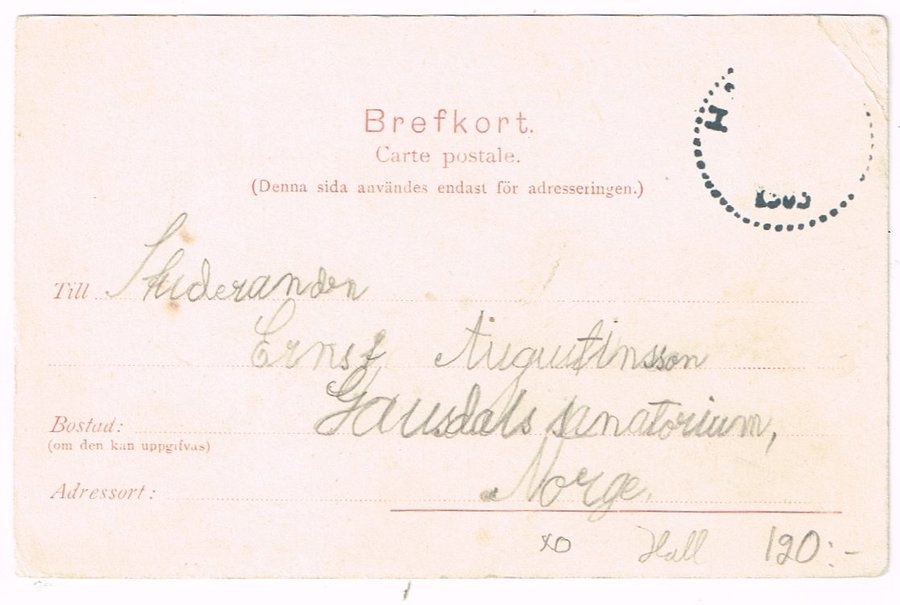 Brefkort.
Carte postale.
(Denna sida användes endast för adresseringen.)
H
1903
Till Studeranden
Ernst Augustinsson
Bostad: Gausdals sanatorium,
(om den kan uppgifvas)
Adressort: Norge.
xo Hall 120:-